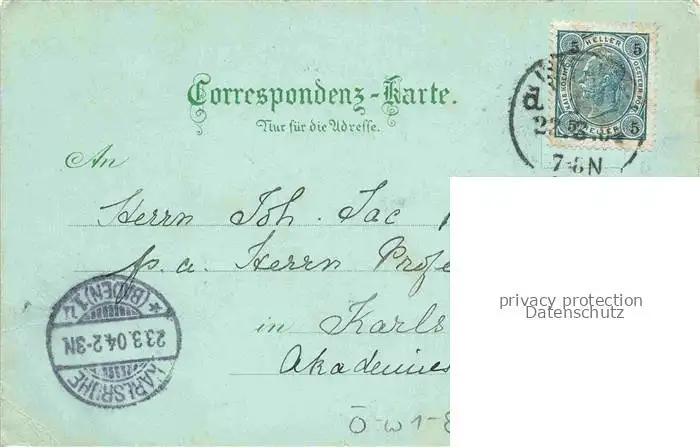 Correspondenz-Karte.
Nur für die Adresse.
An
Herrn Joh. Jac
p. a. Herrn Profe
in Karls
Akademies
Ö-W1-
5 HELLER 5
5 HELLER 5
22.3.04
7-8N
KARLSRUHE
23.3.04.2-3N
*(BADEN)1.
privacy protection
Datenschutz